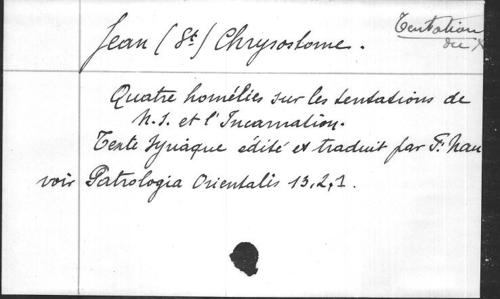 Tentation
du X
Jean (St) Chrysostome.
Quatre homélies sur les tentations de
N.S. et l'Incarnation.
Texte syriaque édité et traduit par F. Nau
voir Patrologia Orientalis 13,2,1.